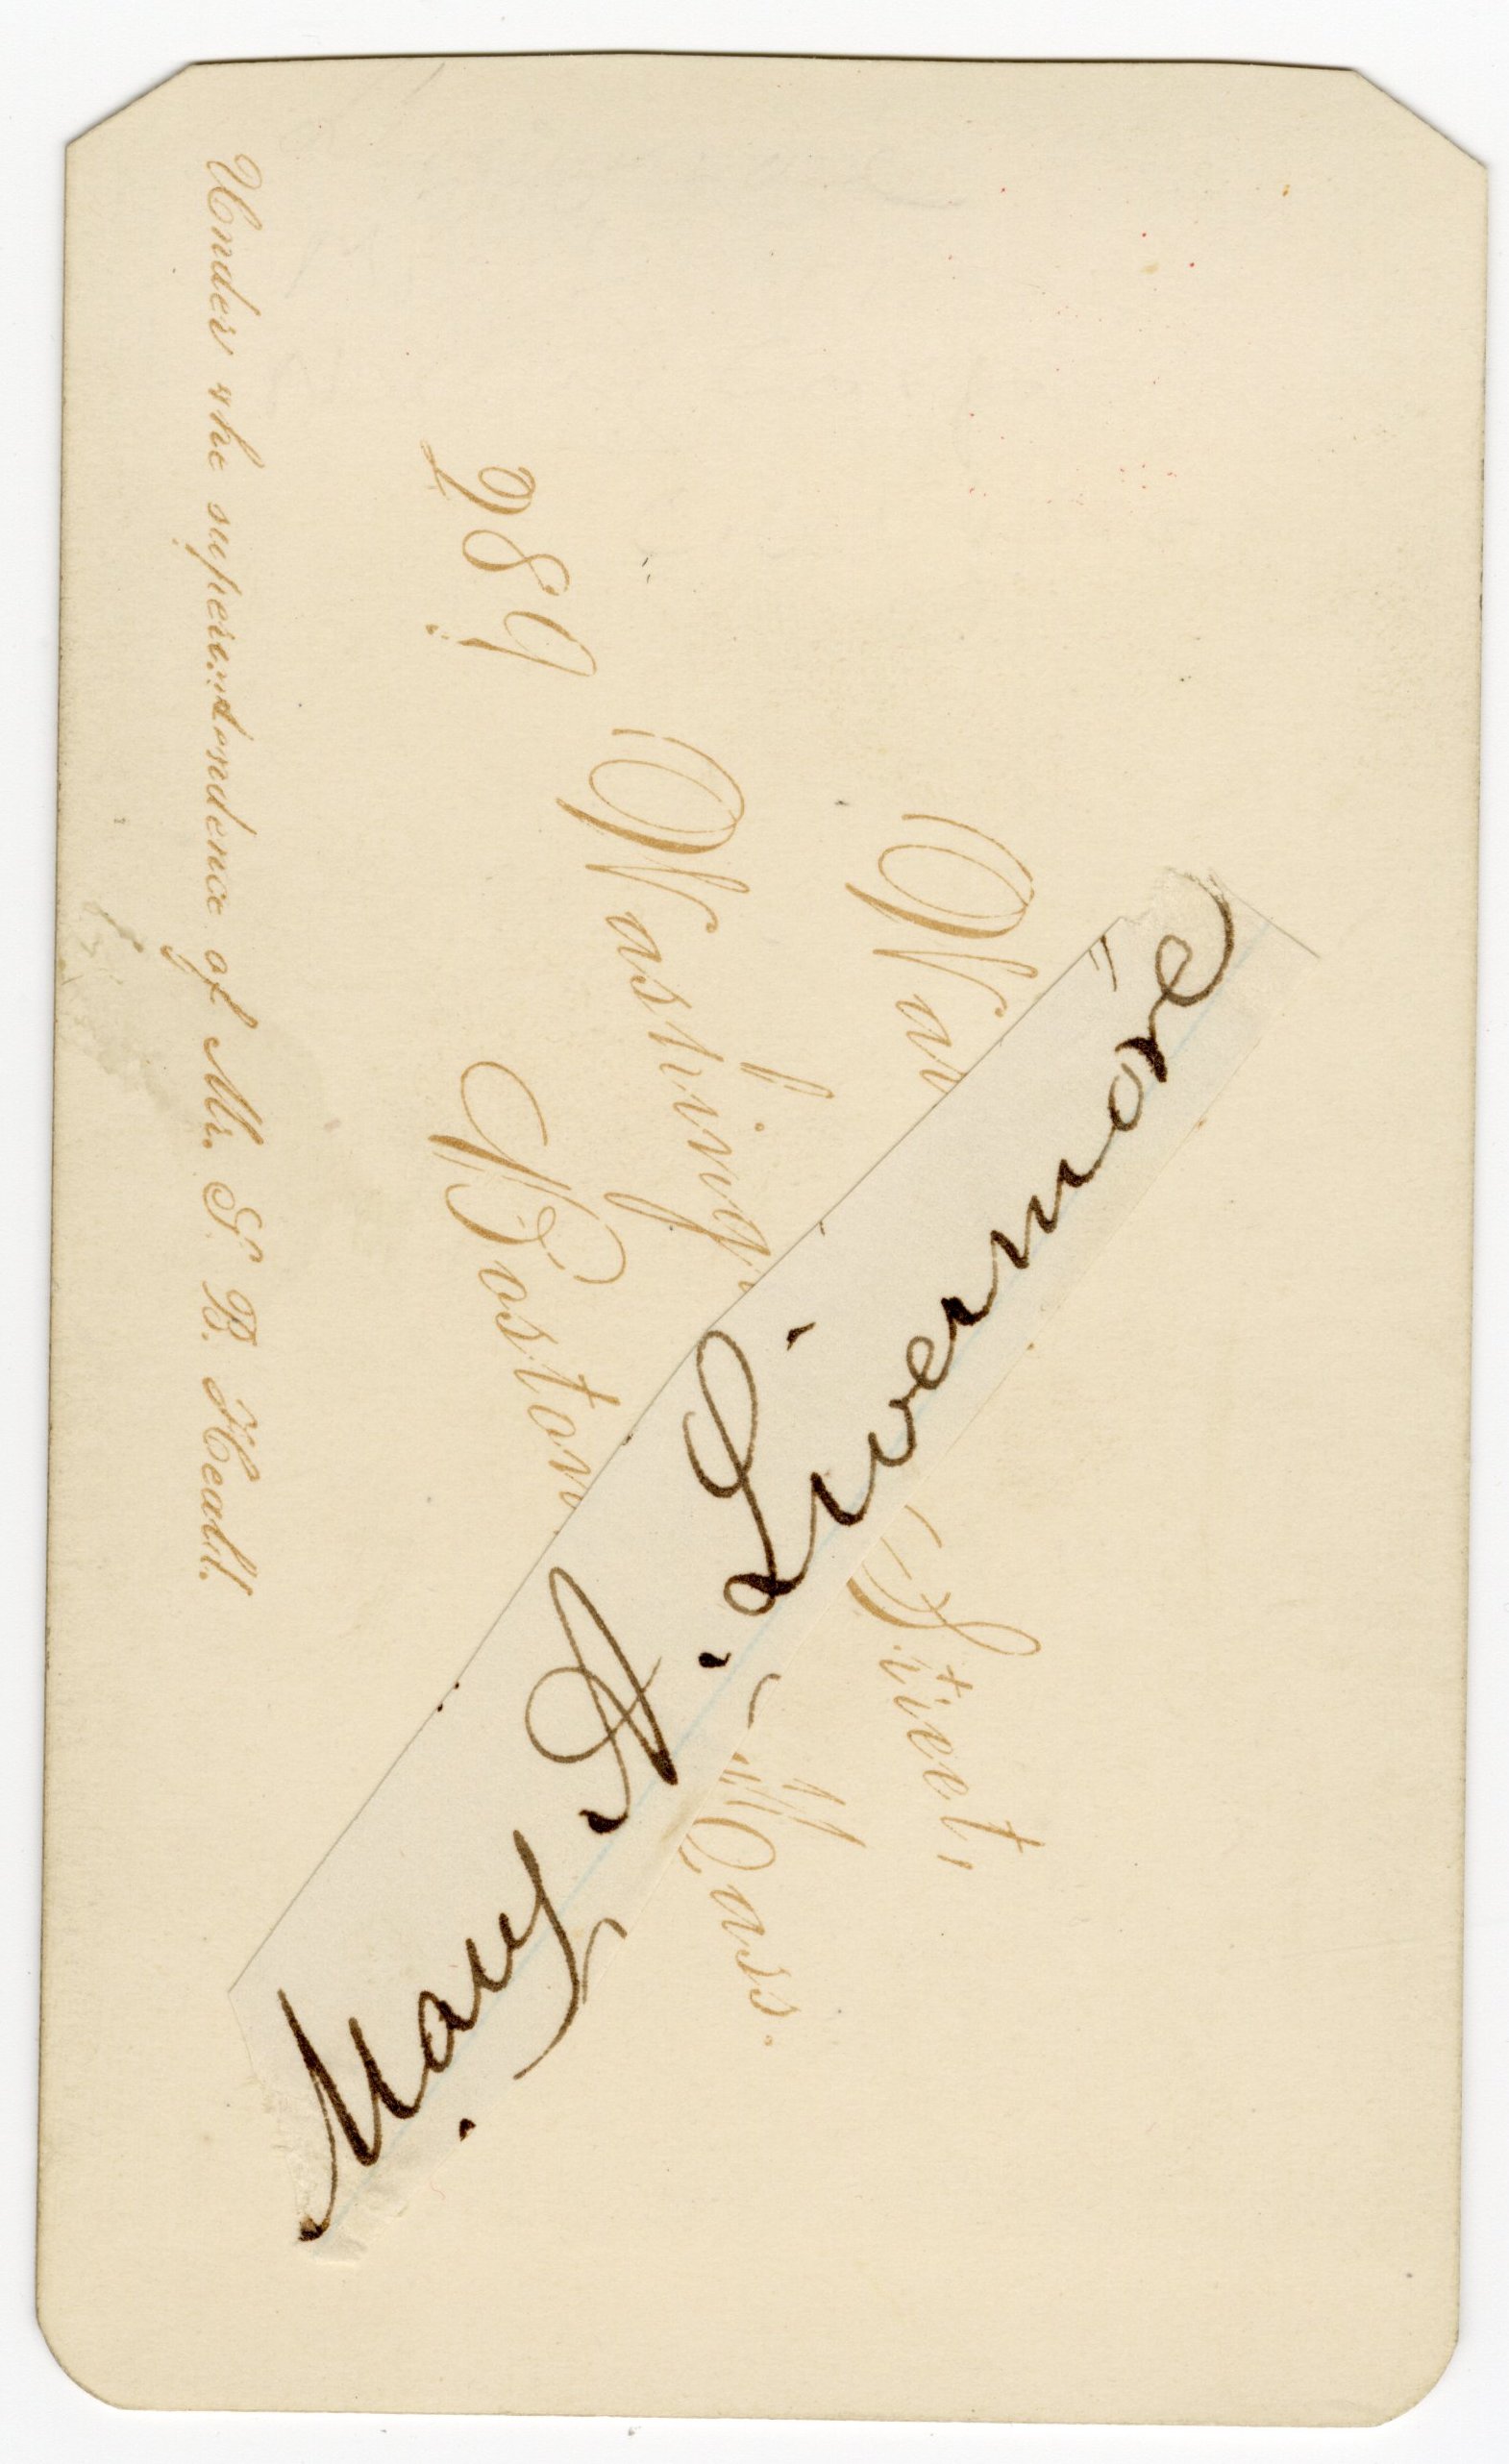 War
289 Washing Street,
Boston Mass.
Mary A. Livermore
Under the superintendence of Mr. S. B. Heald.